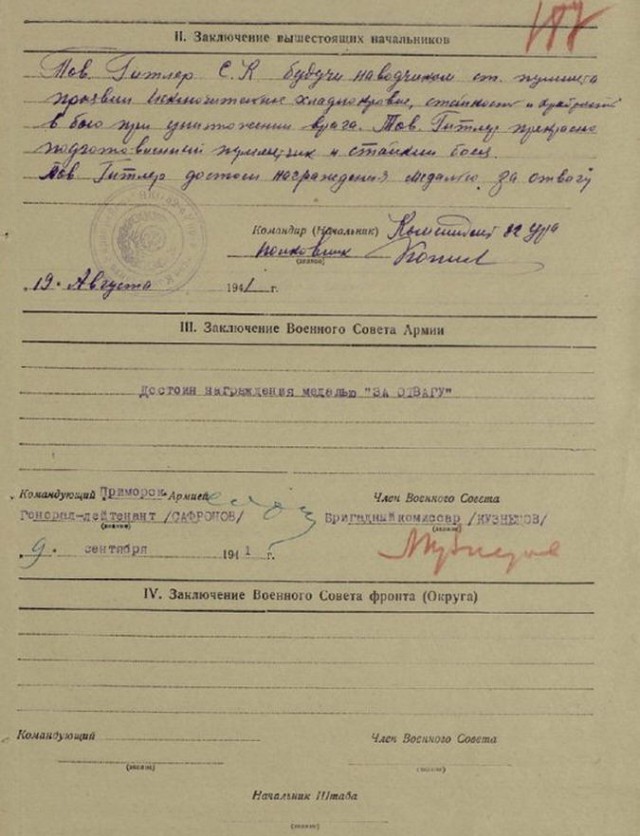 187
II. Заключение вышестоящих начальников
Тов. Гитлер С.К будучи наводчиком ст. пулмета
проявил исключительное хладнокровие, стойкость и храбрость
в бою при уничтожении врага. Тов. Гитлер прекрасно
подготовленный пулеметчик и стойкий боец.
Тов Гитлер достоин награждения медалью за отвагу
Командир (Начальник) Комендант 82 Ура
полковник
(звание)
19. Августа 1941 г.
III. Заключение Военного Совета Армии
Достоин награждения медалью "ЗА ОТВАГУ"
Командующий Приморск. Армией
Член Военного Совета
Генерал-лейтенант /САФРОНОВ/
Бригадный комиссар /КУЗНЕЦОВ/
(звание)
(звание)
9. сентября 1941 г.
IV. Заключение Военного Совета фронта (Округа)
Командующий
Член Военного Совета
(звание)
(звание)
Начальник Штаба
(звание)